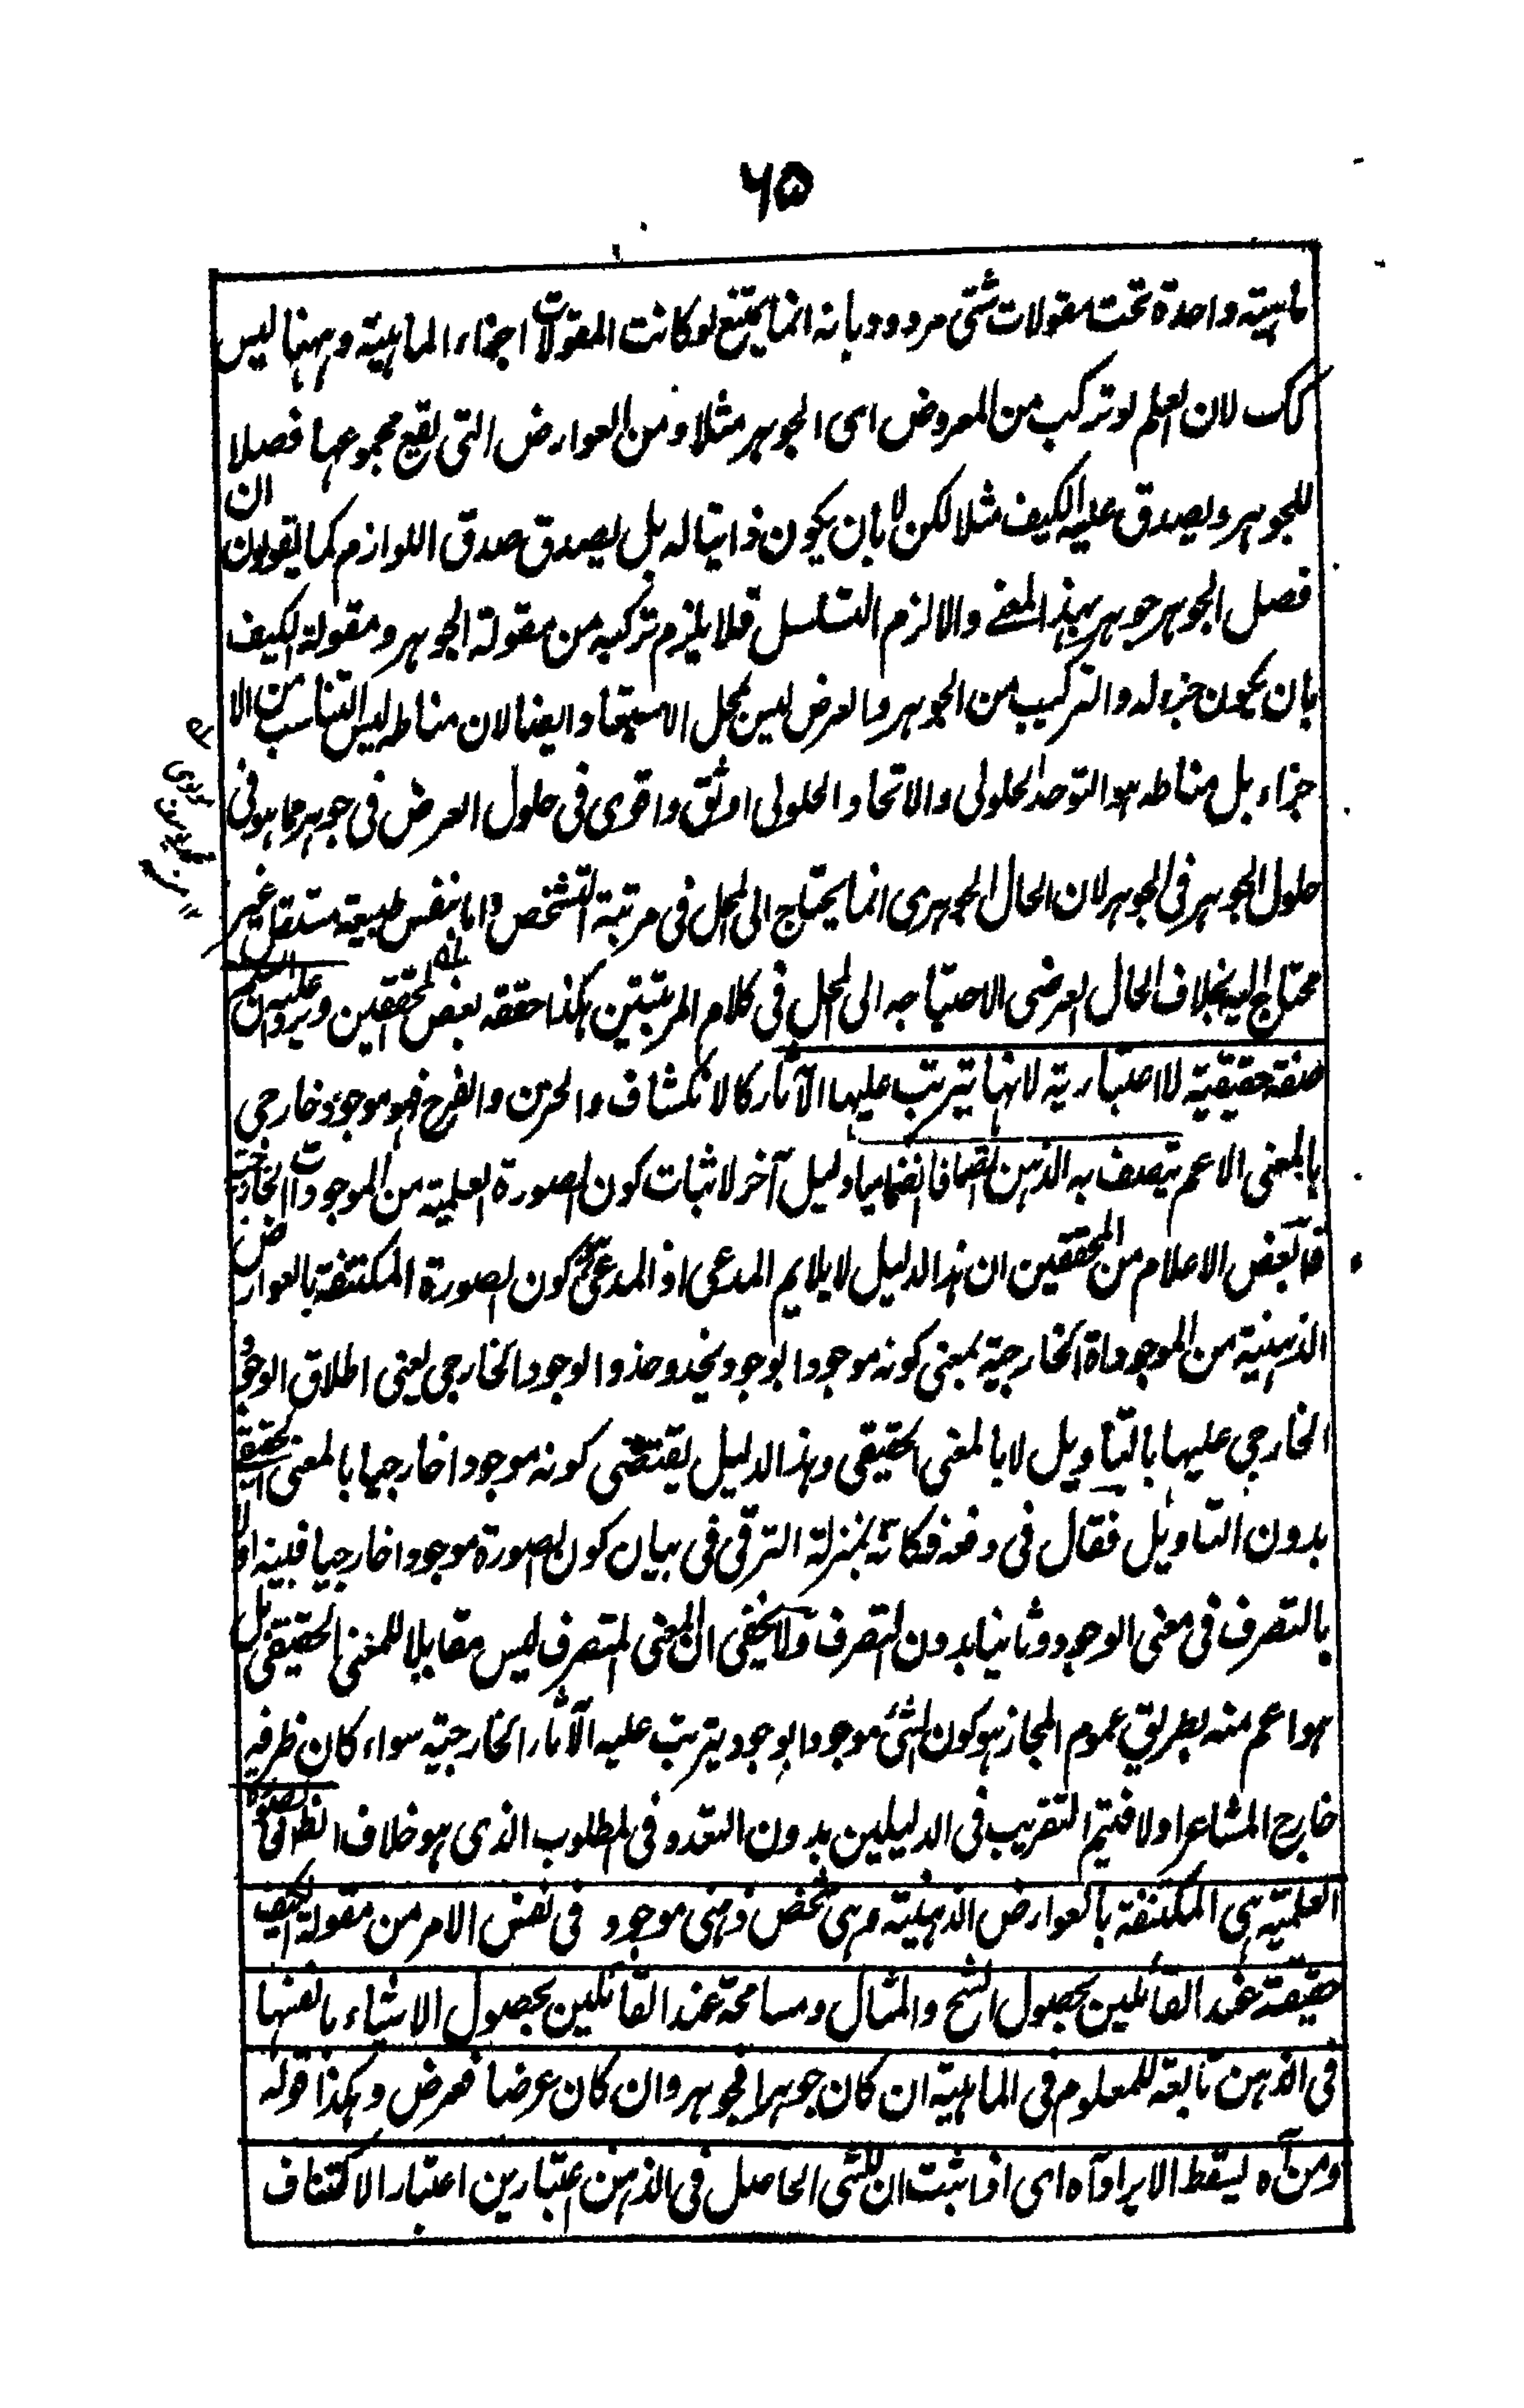 ۶۵
ماهية واحدة تحت مقولات شتى مردود بانه انما يمتنع لو كانت المقولات اجزاء الماهية وههنا ليس
كك لان العلم لو تركب من المعروض اى الجوهر مثلا ومن العوارض التى يقع مجموعها فصلا
للجوهر ويصدق عليه الكيف مثلا لكن لا بان يكون ذاتيا له بل يصدق صدق اللوازم كما يقولون ان
فصل الجوهر جوهر بهذا المعنے والا لزم التسلسل فلا يلزم تركبه من مقولة الجوهر ومقولة الكيف
بان يكون جزء له والتركيب من الجوهر والعرض ليس بمحل الاستبعاد ايضا لان مناطه ليس التناسب من الا
جزاء بل مناطه هو التوحد الحلولى والاتحاد الحلولى اوثق واقوى فى حلول العرض فى جوهر مما هو فى
حلول الجوهر فى الجوهر لان الحال الجوهرى انما يحتاج الى المحل فى مرتبة التشخص واما بنفس طبيعة مستقل غير
محتاج اليه بخلاف الحال العرضى الاحتياجه الى المحل فى كلام المرتبتين هكذا حققه بعض المحققين ويرد عليه ان العلم
صفة حقيقية لا اعتبارية لانها يترتب عليها الآثار كالانكشاف والحزن والفرح فهو موجود خارجى
بالمعنى الاعم يتصف به الذهن اتصافا انضماميا دليل آخر لاثبات كون الصورة العلمية من الموجودات الخارجية
قال بعض الاعلام من المحققين ان هذا الدليل لا يلايم المدعى اذ المدعى كون الصورة المكتنفة بالعوارض
الذهنية من الموجوداة الخارجية بمعنى كونه موجودا بوجود يحذو حذو الوجود الخارجى يعنى اطلاق الوجود
الخارجى عليها بالتاويل لا بالمعنى الحقيقى وهذا الدليل يقتضى كونه موجودا خارجيا بالمعنى الحقيقى
بدون التاويل فقال فى دفعه فكانه بمنزلة الترقى فى بيان كون الصورة موجودا خارجيا فبينه اولا
بالتصرف فى معنى الوجود وثانيا بدون التصرف ولا يخفى ان المعنى المتصرف ليس مقابلا للمعنى الحقيقى بل
هو اعم منه بطريق عموم المجاز هو كون الشئ موجودا بوجود يترتب عليه الآثار الخارجية سواء كان ظرفيه
خارج المشاعر اولا فتيم التقريب فى الدليلين بدون التعدد فى المطلوب الذى هو خلاف الظ فالصورة
العلمية هى المكتنفة بالعوارض الذهنية وهى شخص ذهنى موجود فى نفس الامر من مقولة الكيف
حقيقة عند القائلين بحصول الشبح والمثال ومسامحة عند القائلين بحصول الاشياء بانفسها
فى الذهن تابعة للمعلوم فى الماهية ان كان جوهرا فجوهر وان كان عرضا فعرض وهكذا قوله
ومن آه يسقط الايراد آه اى اذا ثبت ان للشئ الحاصل فى الذهن اعتبارين اعتبار الاكتناف